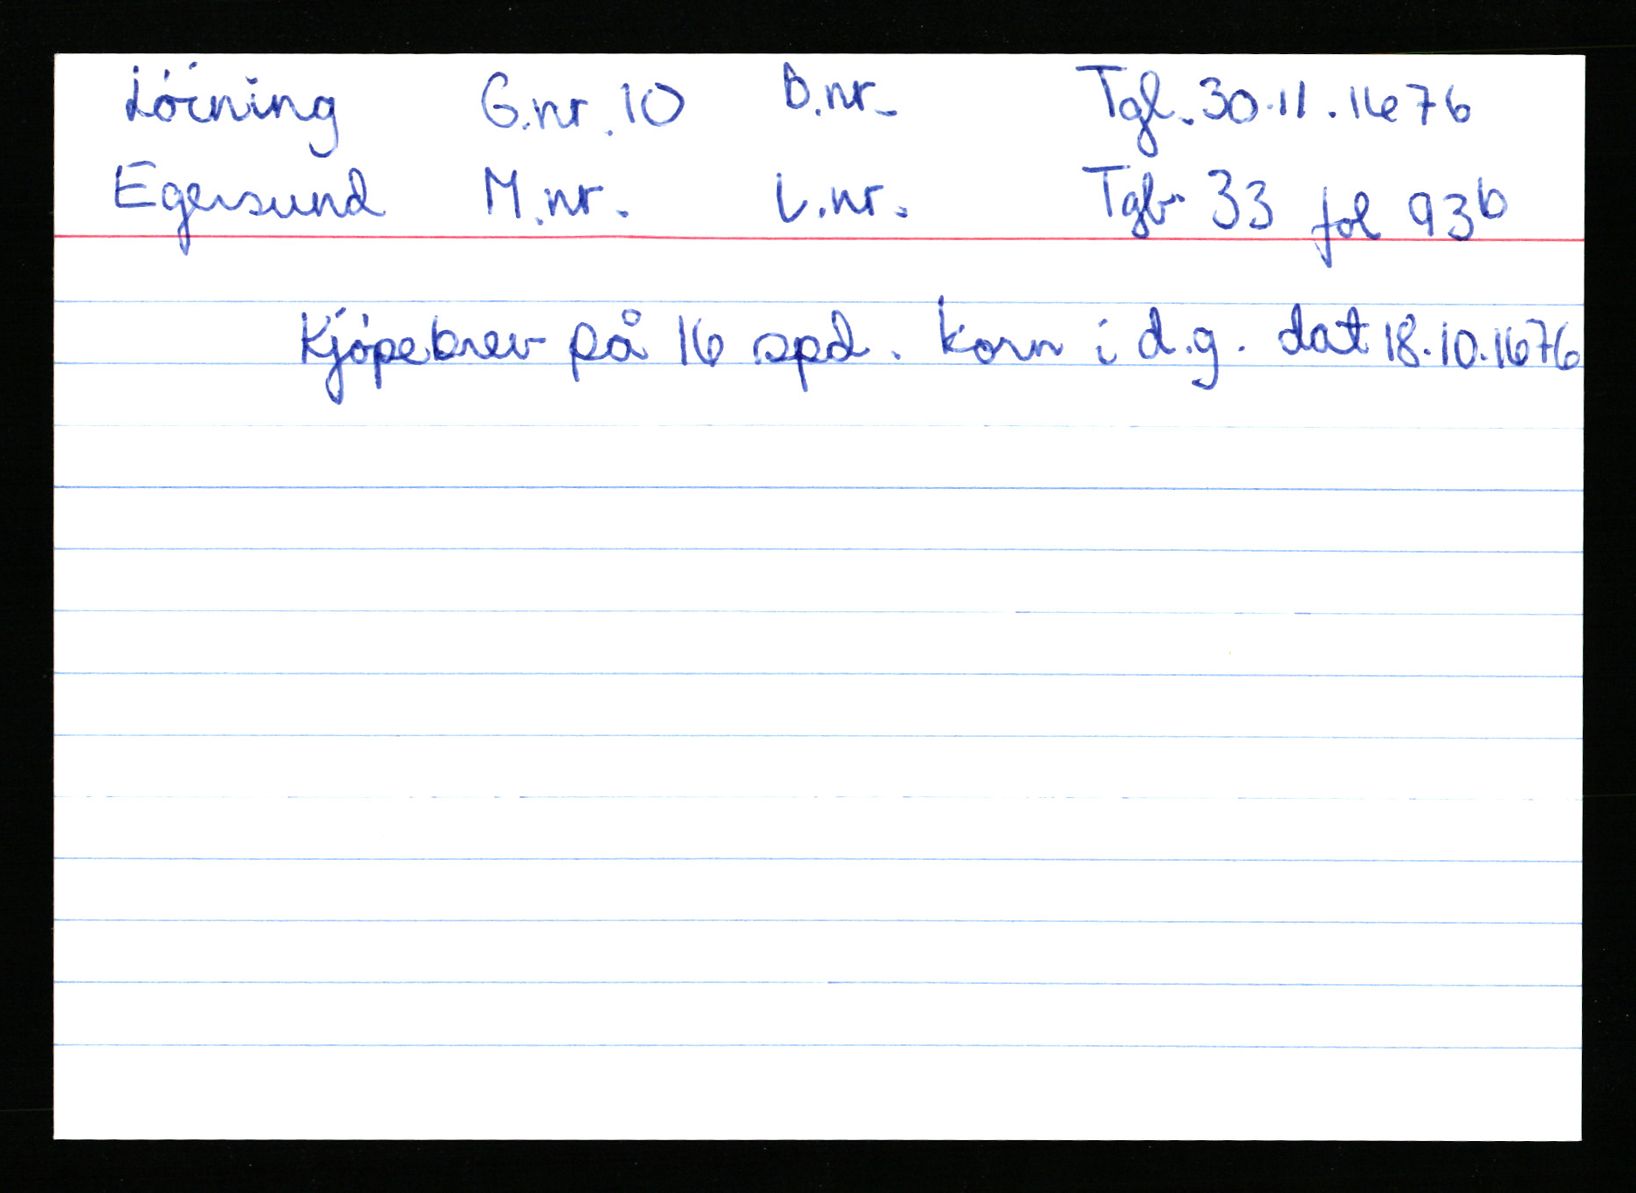 Löining G.nr. 10 B.nr. Tgl. 30.11.1676
Egersund M.nr. L.nr. Tgb. 33 fol 93b
Kjöpebrev på 16 spd. korn i d.g. dat 18.10.1676